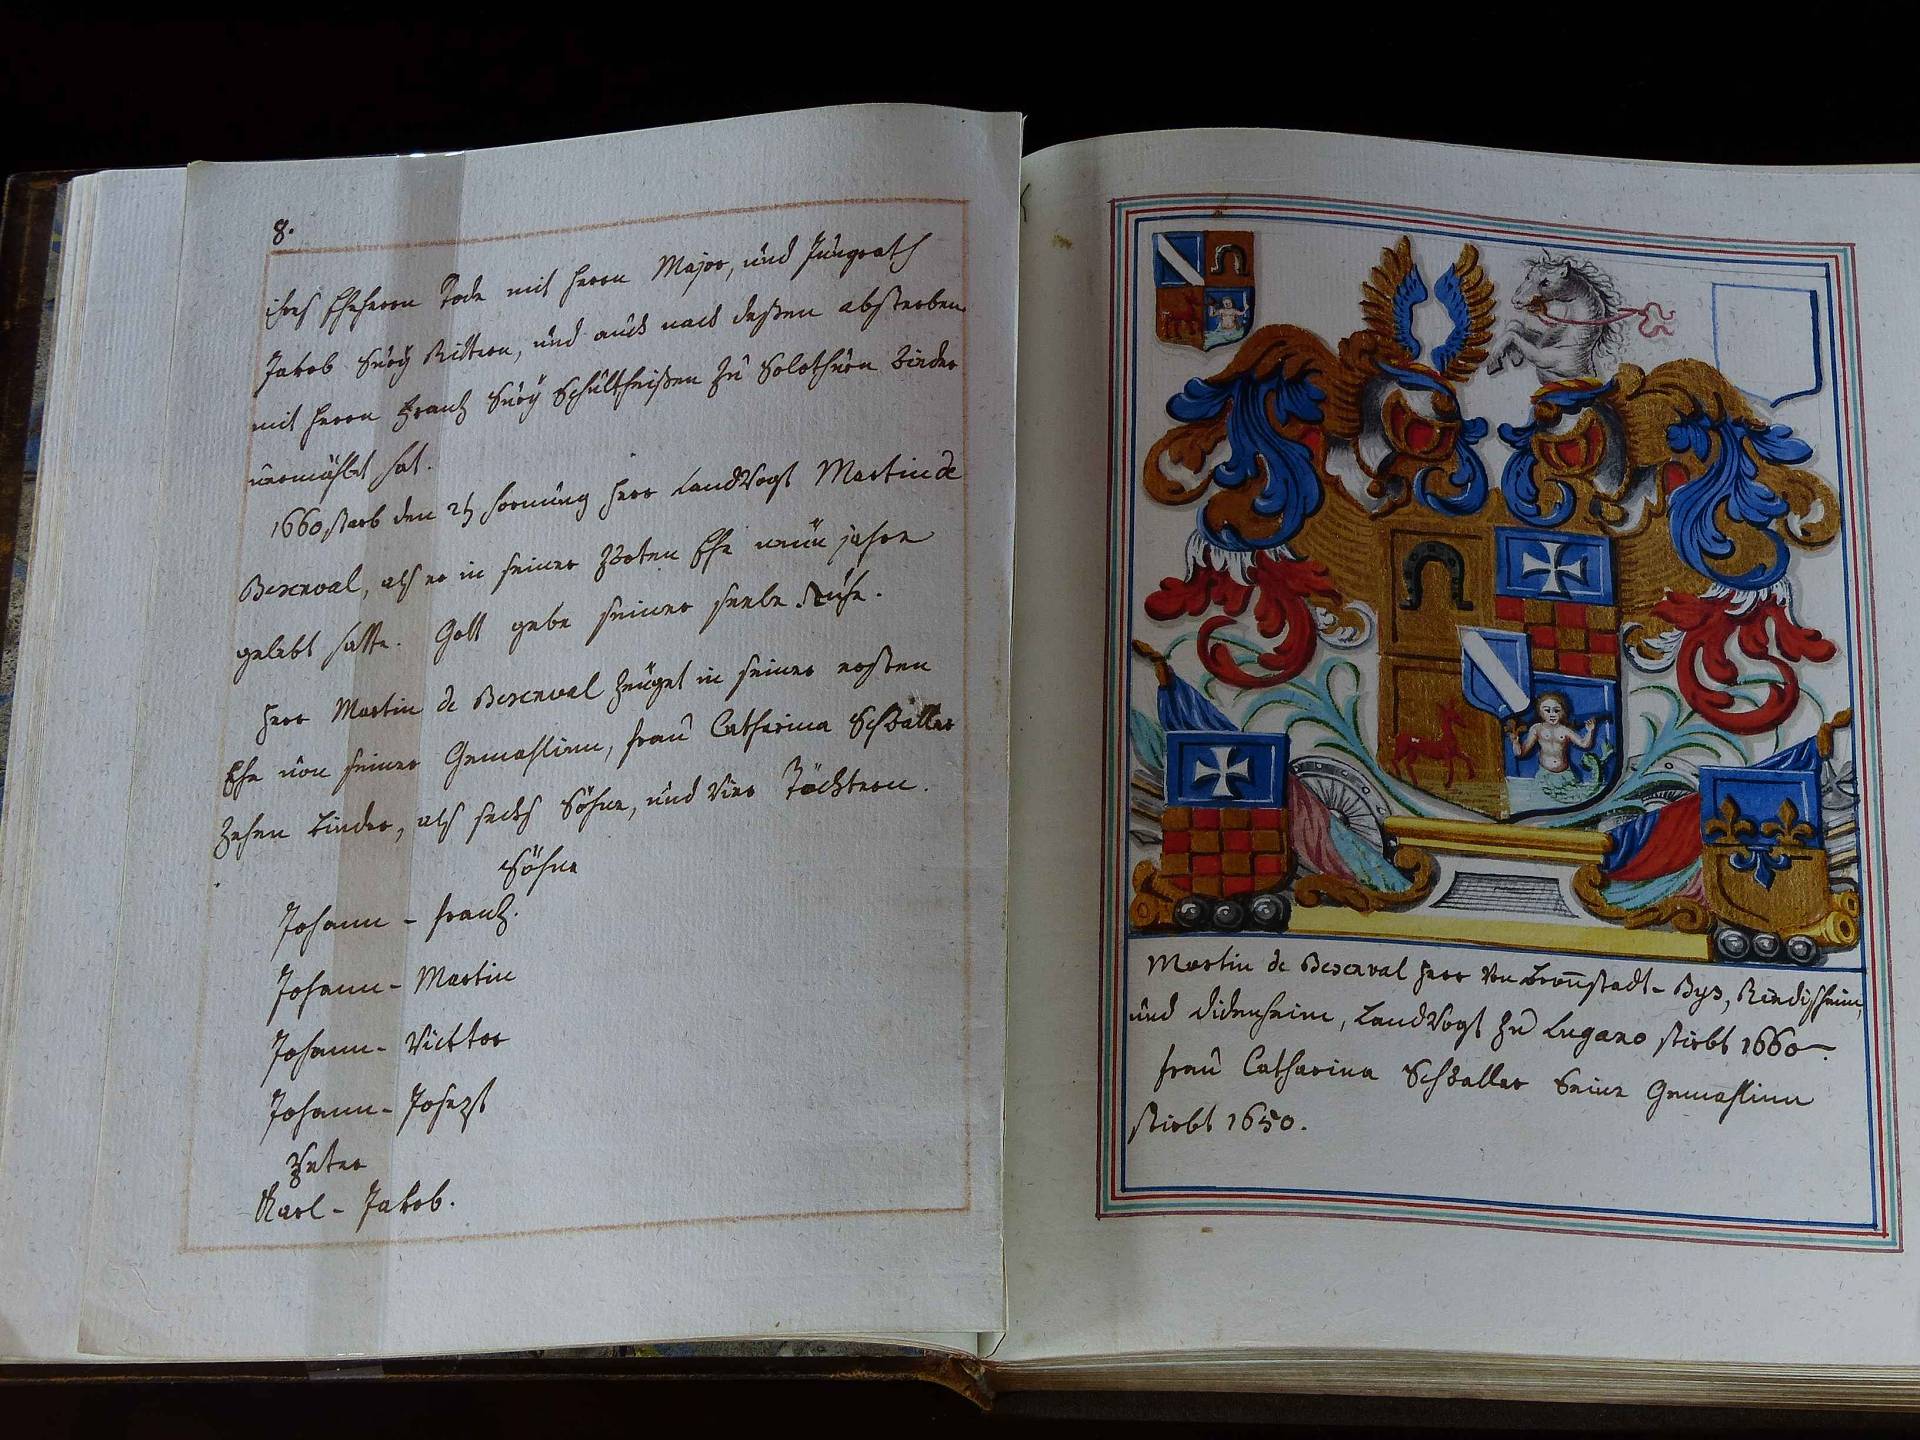 8.
ihres Eheherrn Tode mit herrn Major, und Jungrath
Jakob Sury Rittern, und auch nach deßen absterben
mit herrn Franz Süry Schultheißen zu Solothurn Binder
vermählt hat.
1660 starb den 25 hornung herr LandVogt Martin de
Besenval, als er in seiner Zwoten Ehe neün jahre
gelebt hatte. Gott gebe seiner seele Ruhe.
herr Martin de Besenval zeüget in seiner ersten
Ehe von seiner Gemahlinn, frau Catharina Schwaller
Zehen Kinder, als sechs Söhne, und Vier Töchtern.
Söhne
Johann - Franz.
Johann - Martin
Johann - Vicktor
Johann - Joseph
Peter
Karl - Jakob.
Martin de Besenval herr Von Bronstadt - Bys, Riedisheim,
und Didenheim, LandVogt zu Lugano stirbt 1660.
frau Catharina Schwaller Seine Gemahlinn
stirbt 1650.